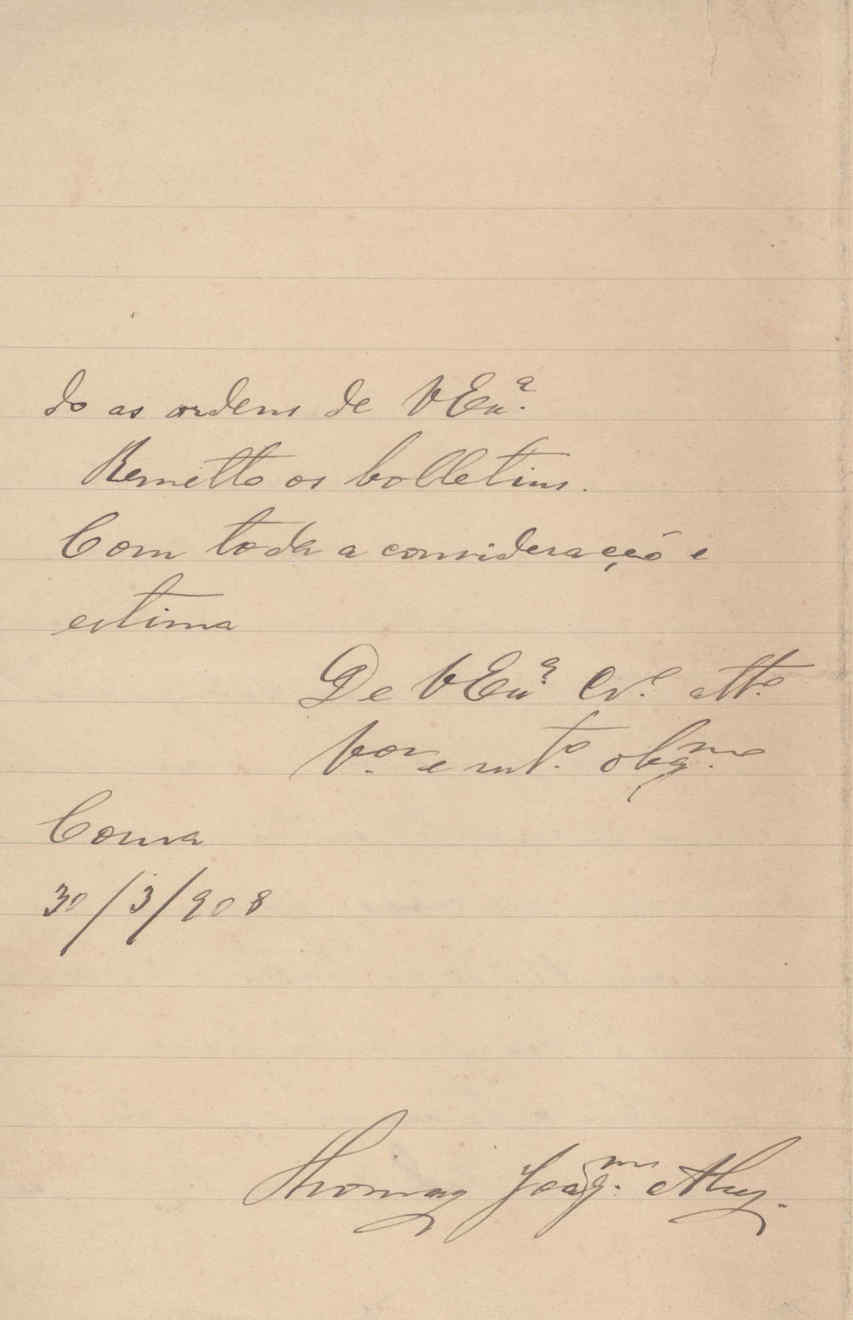 do as ordens de V Exª.
Remetto os bolletins.
Com toda a consideração e
estima
De V Exª Crº. attº.
Vºr. e mtº. obgmº.
30/3/908
Thomaz Joaqm.